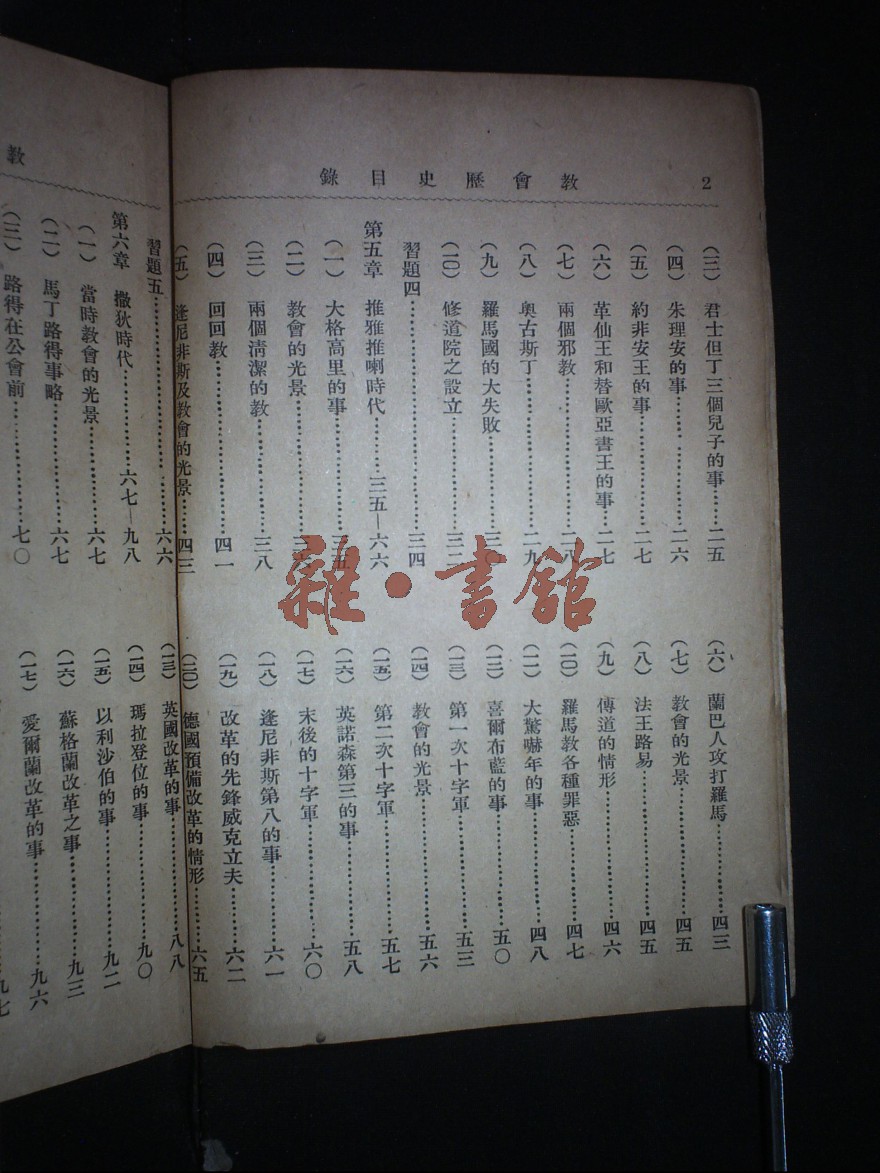 教會歷史目錄
2
(三) 君士但丁三個兒子的事……二五
(四) 朱理安的事……二六
(五) 約非安王的事……二七
(六) 革仙王和替歐亞書王的事……二七
(七) 兩個邪教……二八
(八) 奧古斯丁……二九
(九) 羅馬國的大失敗……三
(一〇) 修道院之設立……三二
習題四……三四
第五章 推雅推喇時代……三五—六六
(一) 大格高里的事……三五
(二) 教會的光景……三六
(三) 兩個清潔的教……三八
(四) 回回教……四一
(五) 逢尼非斯及教會的光景……四三
(六) 蘭巴人攻打羅馬……四三
(七) 教會的光景……四五
(八) 法王路易……四五
(九) 傳道的情形……四六
(一〇) 羅馬教各種罪惡……四七
(一一) 大驚嚇年的事……四八
(一二) 喜爾布藍的事……五〇
(一三) 第一次十字軍……五三
(一四) 教會的光景……五六
(一五) 第二次十字軍……五七
(一六) 英諾森第三的事……五八
(一七) 末後的十字軍……六〇
(一八) 逢尼非斯第八的事……六一
(一九) 改革的先鋒威克立夫……六二
(二〇) 德國預備改革的情形……六五
教
習題五……六六
第六章 撒狄時代……六七—九八
(一) 當時教會的光景……六七
(二) 馬丁路得事略……六七
(三) 路得在公會前……七〇
(一三) 英國改革的事……八八
(一四) 瑪拉登位的事……九〇
(一五) 以利沙伯的事……九二
(一六) 蘇格蘭改革之事……九三
(一七) 愛爾蘭改革的事……九六
九七
雜·書館